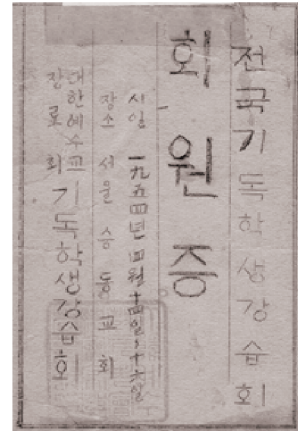 전국기독학생강습회
회원증
시일 一九五四년 四월 十四일〃十六일
장소 서울승동교회
대한예수교
장로회 기독학생강습회